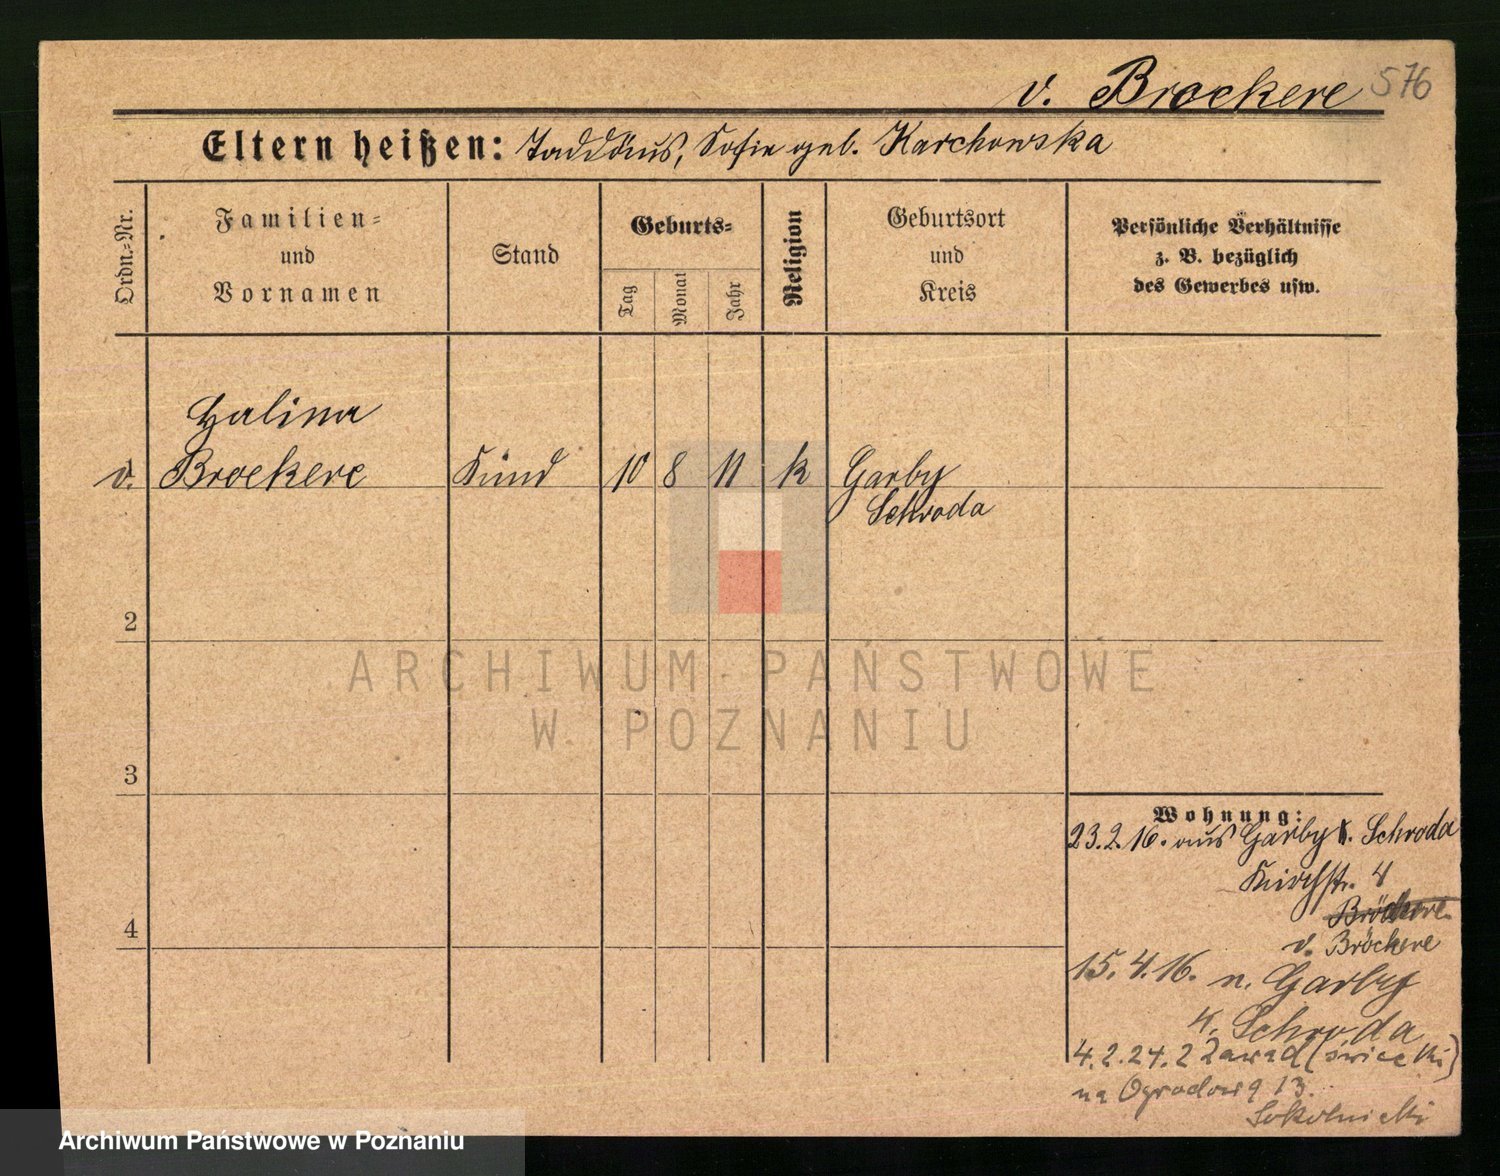 v. Broekere 576
Eltern heißen: Taddäus, Sofie geb. Karchowska
Ordn.=Nr.
Familien=
und
Vornamen
Stand
Geburts=
Tag
Monat
Jahr
Religion
Geburtsort
und
Kreis
Persönliche Verhältnisse
z. B. bezüglich
des Gewerbes usw.
Halina
v. Broekere Kind 10 8 11 k Garby
Schroda
2
3
4
Wohnung:
23.2.16. aus Garby k. Schroda
Kirchstr. 4
Bröckere
v. Bröckere
15.4.16. n. Garby
K. Schroda
4.2.24. z Zawad (świecki)
na Ogrodową 13.
Sokolnicki
ARCHIWUM PAŃSTWOWE
W POZNANIU
Archiwum Państwowe w Poznaniu